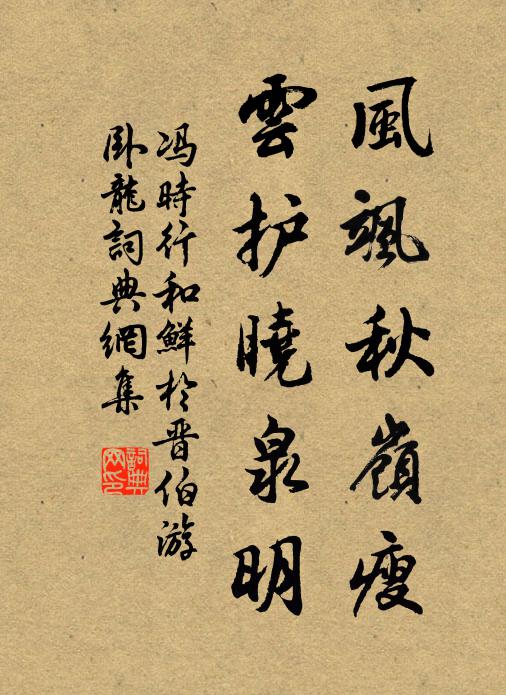 風颯秋嶺瘦
雲护曉泉明
冯時行和鮮於晋伯游
卧龍詞典網集
詞典网印